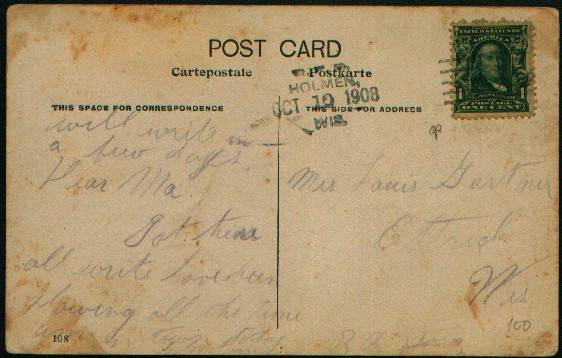 POST CARD
Cartepostale Postkarte
R.F.D.
HOLMEN,
OCT 10 1908
WIS
THIS SPACE FOR CORRESPONDENCE
THIS SIDE FOR ADDRESS
UNITED STATES OF AMERICA
POSTAGE
1 ONE CENT 1
will write in
a few days.
Dear Ma.
Got here
all write have been
plowing all the time
am in town today
Mrs Louis Gartner
Ettrick
Wis
100
108